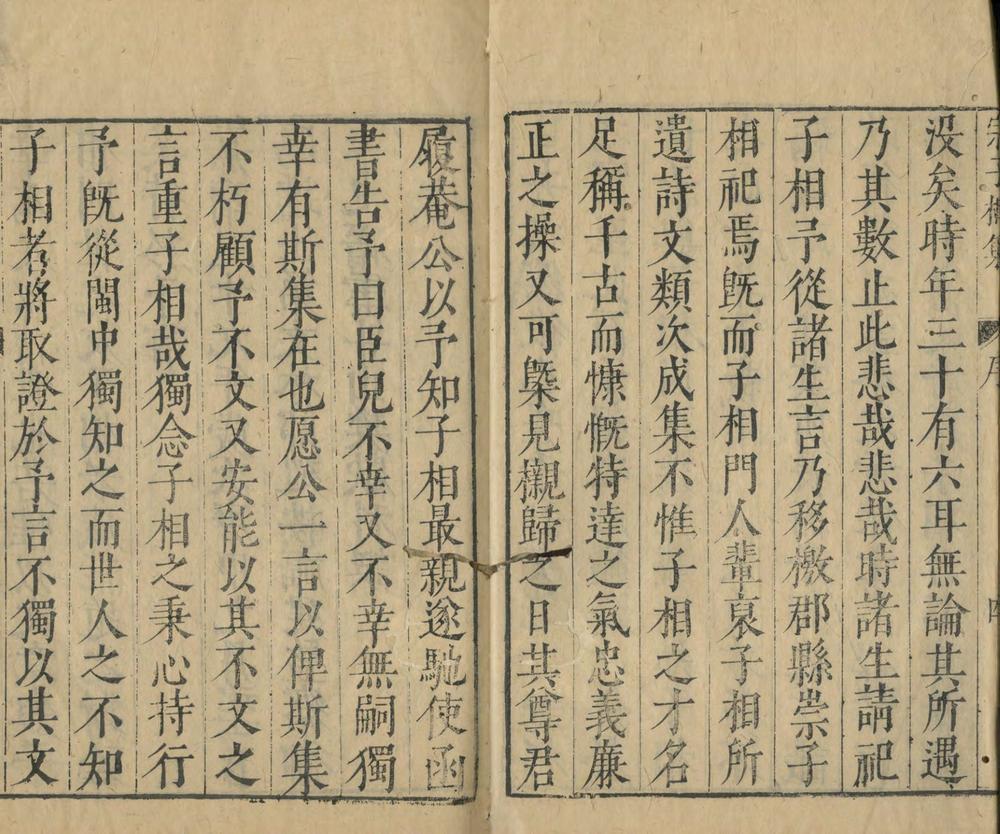 没矣時年三十有六耳無論其所遇
乃其數止此悲哉悲哉時諸生請祀
子相予從諸生言乃移檄郡縣崇子
相祀焉旣而子相門人輩裒子相所
遺詩文類次成集不惟子相之才名
足稱千古而慷慨特達之氣忠義廉
正之操又可槩見櫬歸之日其尊君
履菴公以予知子相最親遂馳使函
書告予曰臣兒不幸又不幸無嗣獨
幸有斯集在也愿公一言以俾斯集
不朽顧予不文又安能以其不文之
言重子相哉獨念子相之秉心持行
予旣從閩中獨知之而世人之不知
子相者將取證於予言不獨以其文